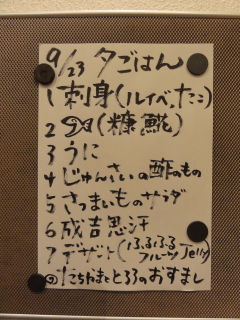 9/23 夕ごはん
1 刺身(ルイベ、たこ)
2 (糠鯱)
3 うに
4 じゅんさいの酢のもの
5 さつまいものサラダ
6 成吉思汗
7 デザート(ふるふるフルーツJelly)
のおすまし